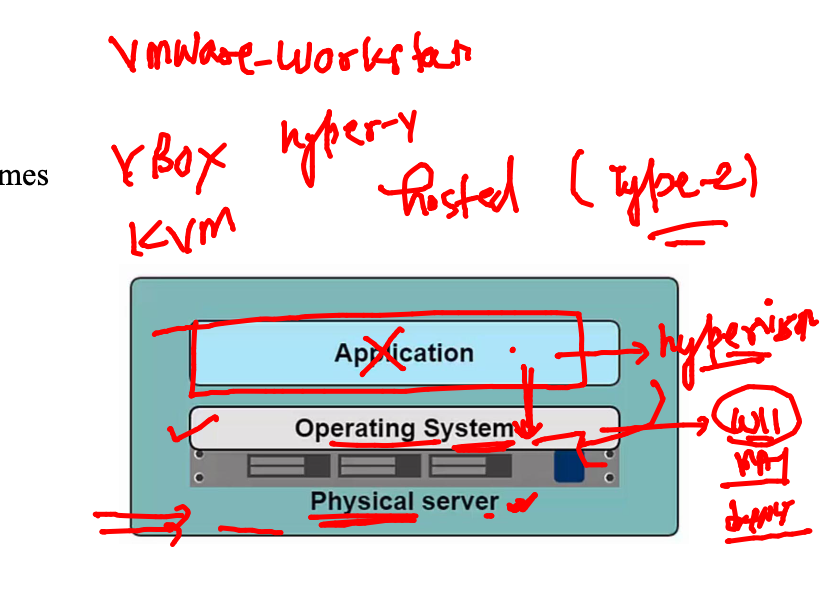 VMware-Workstan
hyper-V
mes
VBOX
hosted (Type-2)
KVM
Application
hypervisor
Operating System
W11
Physical server